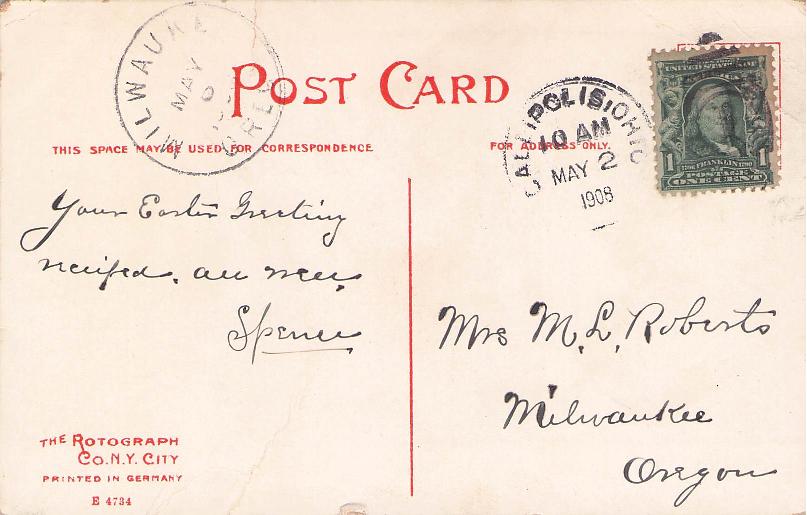 MILWAUKE
MAY
OREG
POST CARD
THIS SPACE MAY BE USED FOR CORRESPONDENCE
FOR ADDRESS ONLY.
GALLIPOLIS, OHIO
10 AM
MAY 2
1908
UNITED STATES OF
FRANKLIN
POSTAGE
1 ONE CENT 1
Your Easter Greeting
received. all well
Spencer
Mrs M. L. Roberts
Milwaukee
Oregon
THE ROTOGRAPH
CO. N.Y. CITY
PRINTED IN GERMANY
E 4734